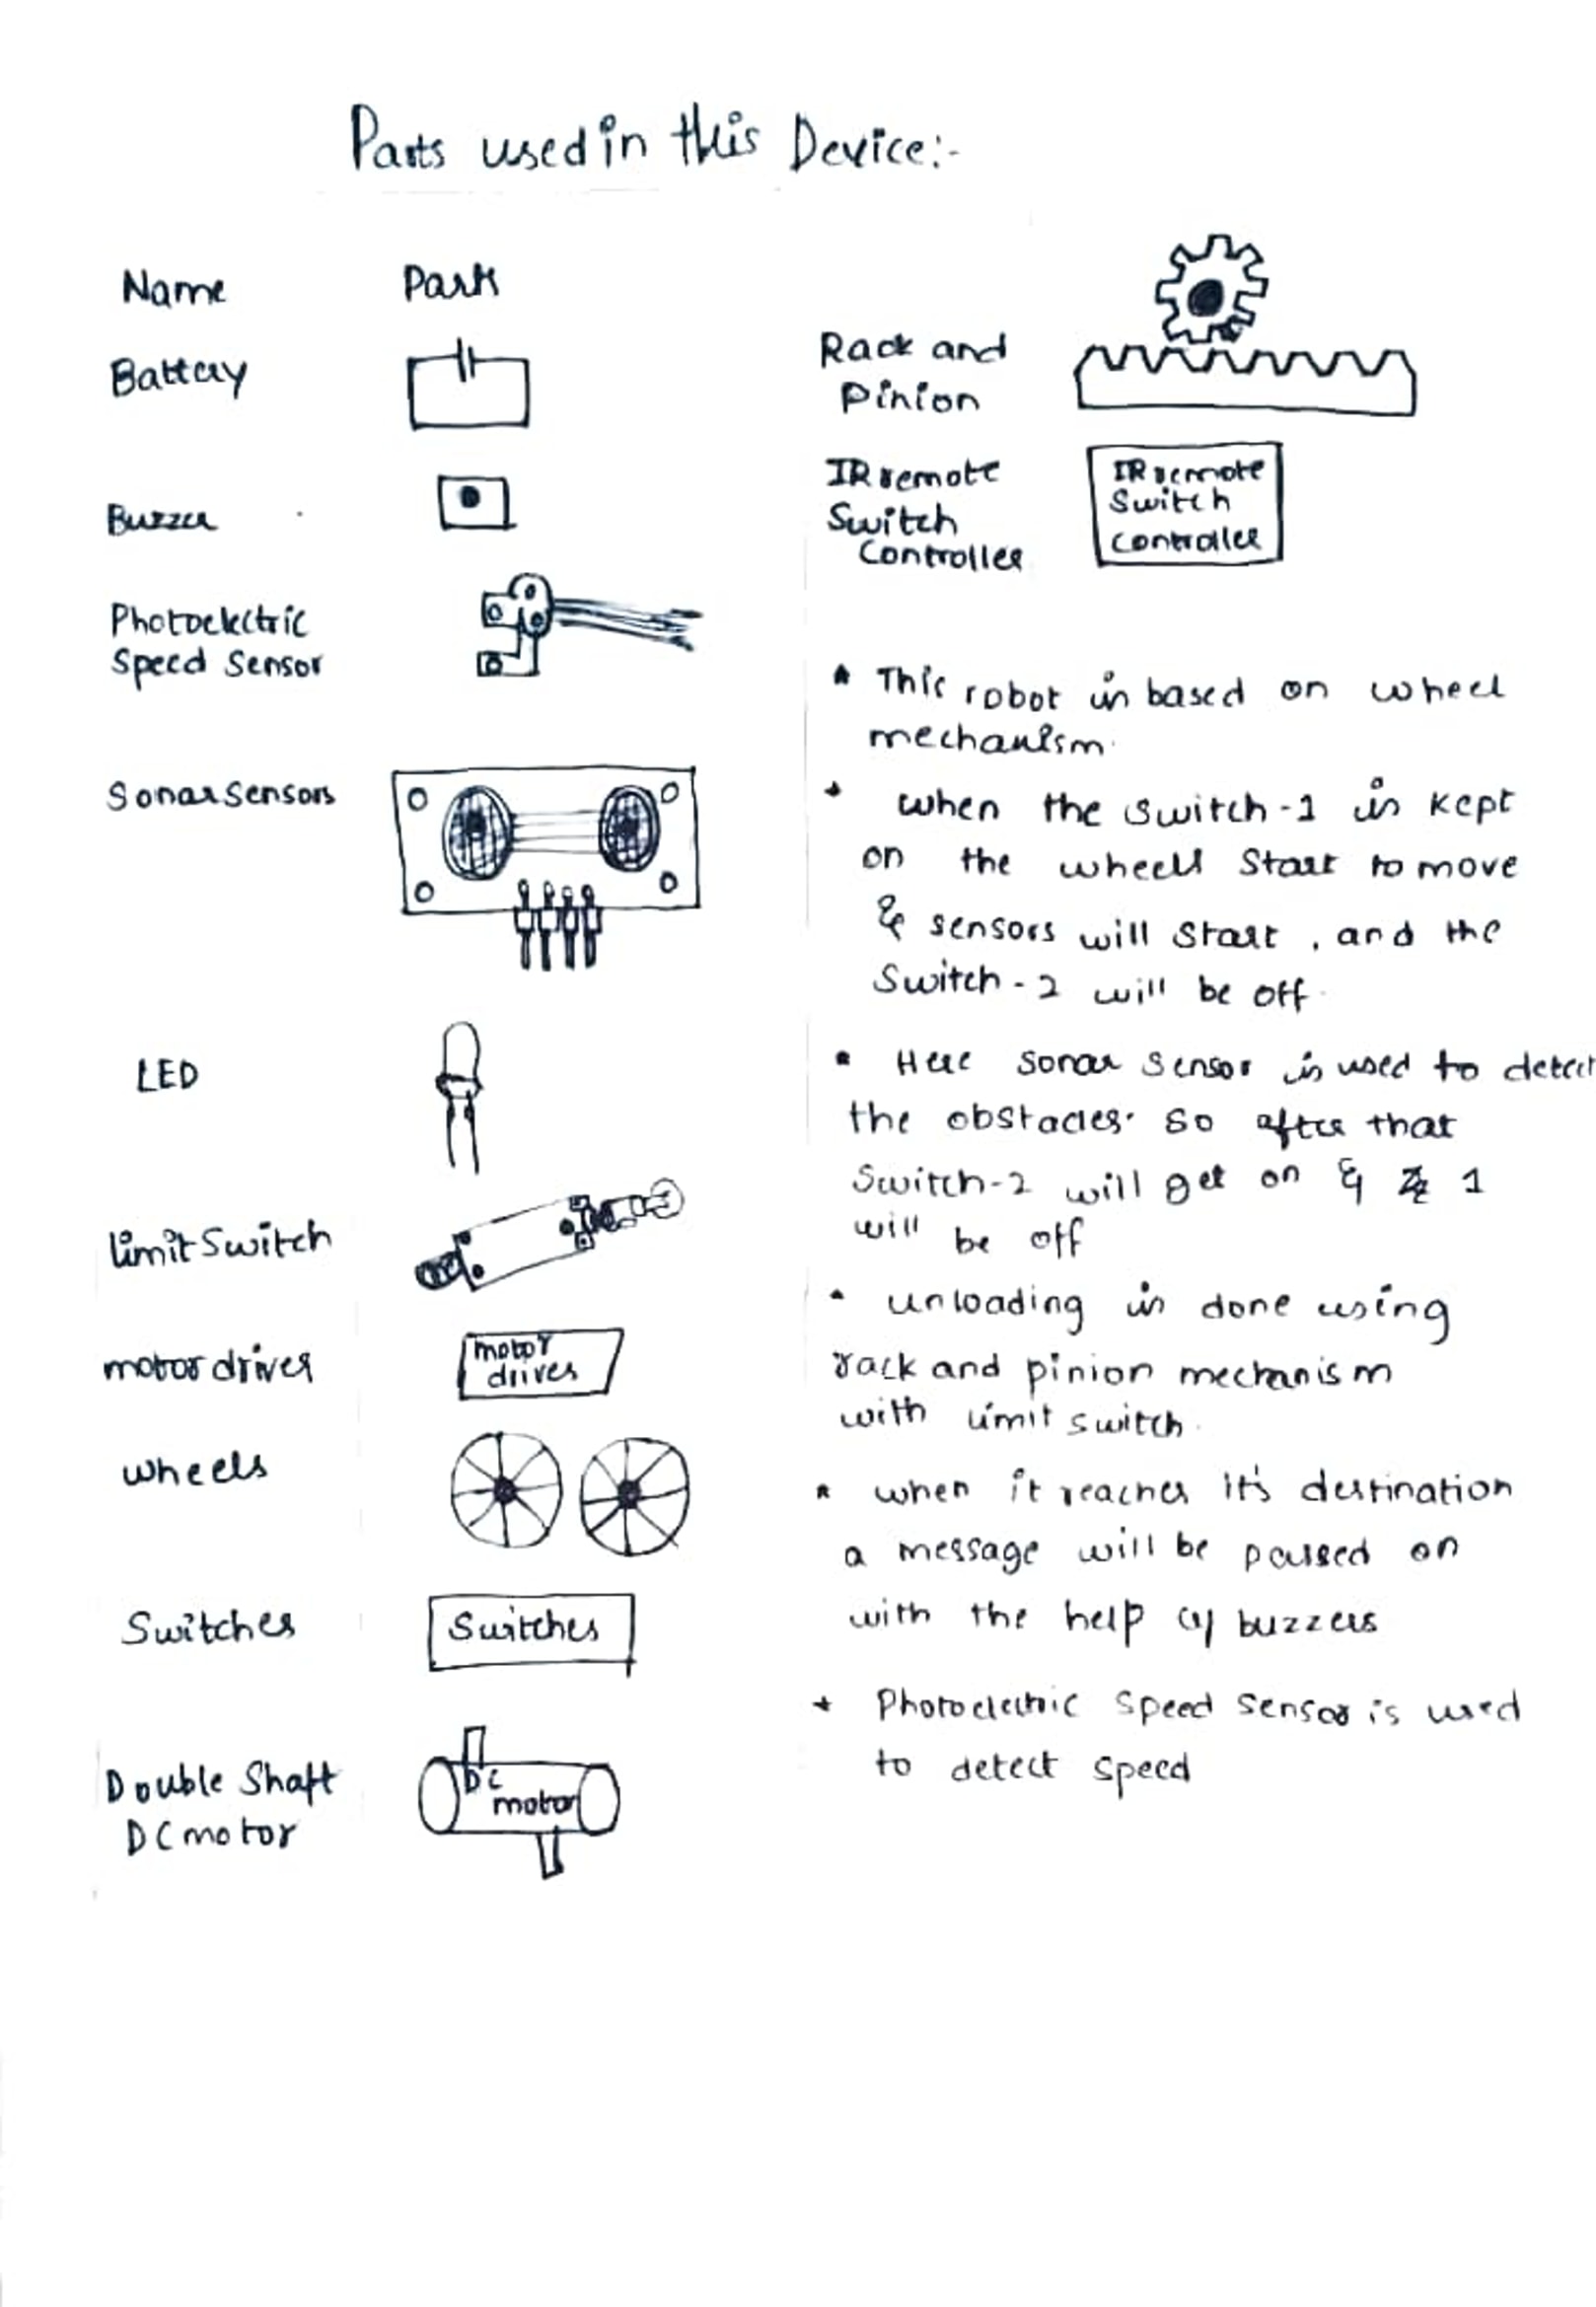 Parts used in this Device:-
Name Parts
Battery
Buzzer
Photoelectric
Speed Sensor
Sonar Sensors
LED
limit Switch
motor drives
motor
drives
wheels
Switches
Switches
Double Shaft
DC motor
DC
motor
Rack and
Pinion
IR remote
Switch
Controller
IR remote
Switch
Controller
* This robot is based on wheel
mechanism.
* when the switch-1 is kept
on the wheels Start to move
& sensors will start, and the
Switch-2 will be off.
* Here sonar sensor is used to detect
the obstacles. So after that
Switch-2 will get on & 1
will be off
* unloading is done using
rack and pinion mechanism
with limit switch.
* when it reaches it's destination
a message will be passed on
with the help of buzzers
* Photoelectric Speed Sensor is used
to detect speed